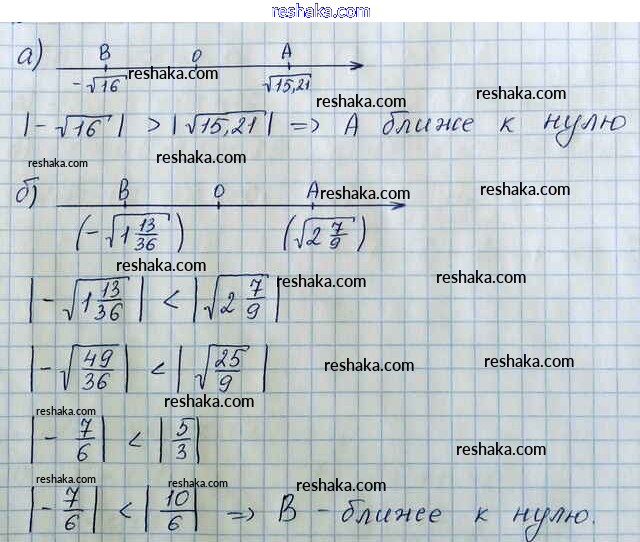 reshaka.com
а) B 0 A
-√16 reshaka.com √15,21
reshaka.com reshaka.com
|-√16| > |√15,21| => A ближе к нулю
reshaka.com reshaka.com reshaka.com
б) B 0 A reshaka.com reshaka.com
(-√1 13/36) (√2 7/9)
reshaka.com
|-√1 13/36| < |√2 7/9| reshaka.com reshaka.com
|-√49/36| < |√25/9| reshaka.com reshaka.com
reshaka.com reshaka.com
|-7/6| < |5/3| reshaka.com reshaka.com
reshaka.com reshaka.com reshaka.com
|-7/6| < |10/6| => B - ближе к нулю.